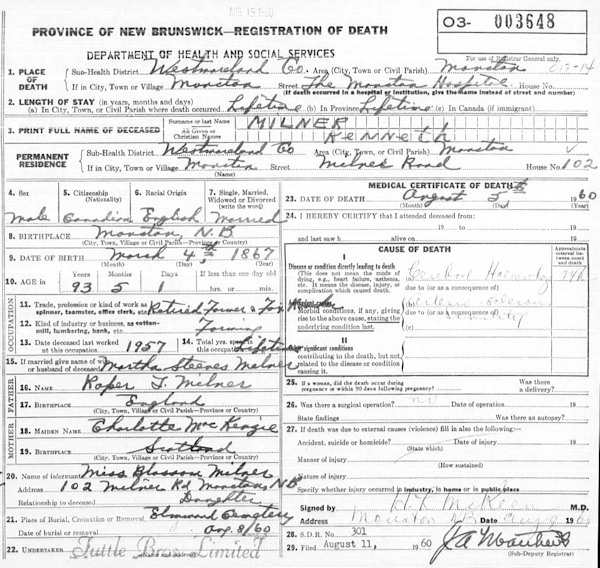 APR 19 1960
PROVINCE OF NEW BRUNSWICK—REGISTRATION OF DEATH
03- 003648
DEPARTMENT OF HEALTH AND SOCIAL SERVICES
For use of Registrar General only.
1. PLACE OF DEATH
Sub-Health District Westmoreland Co. Area (City, Town or Civil Parish) Moncton 012-14
If in City, Town or Village Moncton Street The Moncton Hospital House No.
(If death occurred in a hospital or institution, give the name instead of street and number)
2. LENGTH OF STAY (in years, months and days)
(a) In City, Town, or Civil Parish where death occurred Lifetime (b) In Province Lifetime (c) In Canada (if immigrant)
3. PRINT FULL NAME OF DECEASED
Surname or last name MILNER
All Given or Christian Names Kenneth
PERMANENT RESIDENCE
Sub-Health District Westmoreland Co Area (City, Town or Civil Parish) Moncton
If in City, Town or Village Moncton Street Milner Road House No. 102
(Name)
4. Sex
5. Citizenship (Nationality)
6. Racial Origin
7. Single, Married, Widowed or Divorced (write the word)
Male Canadian English Married
8. BIRTHPLACE Moncton, N.B
(City, Town, Village or Civil Parish—Province or Country)
9. DATE OF BIRTH March 4th 1867
(Month) (Day) (Year)
10. AGE in
Years Months Days If less than one day old
93 5 1 hrs. or min.
OCCUPATION
11. Trade, profession or kind of work as spinner, teamster, office clerk, etc. Retired Farmer & Fox Rancher
12. Kind of industry or business, as cotton-mill, lumbering, bank, etc. Farming
13. Date deceased last worked at this occupation 1957
14. Total yrs. spent in this occupation Lifetime
15. If married give name of wife or husband of deceased Martha Steeves Milner
FATHER
16. Name Roper J. Milner
17. Birthplace England
(City, Town, Village or Civil Parish—Province or Country)
MOTHER
18. Maiden Name Charlotte McKenzie
19. Birthplace Scotland
(City, Town, Village or Civil Parish—Province or Country)
20. Name of informant Miss Blossom Milner
Address 102 Milner Rd Moncton, NB
Relationship to deceased Daughter
21. Place of Burial, Cremation or Removal Elmwood Cemetery
Date of burial or removal Aug. 8/60
22. UNDERTAKER Tuttle Bros. Limited
(Name and address)
MEDICAL CERTIFICATE OF DEATH
23. DATE OF DEATH August 5th 1960
(Month) (Day) (Year)
24. I HEREBY CERTIFY that I attended deceased from: 19
to 19
and last saw h alive on 19
CAUSE OF DEATH
Approximate interval between onset and death
I
Disease or condition directly leading to death
(This does not mean the mode of dying, e.g., heart failure, asthenia, etc. It means the disease, injury or complication which caused death.
(a) Cerebral
due to (or as a consequence of)
Morbid conditions, if any, giving rise to the above cause, stating the underlying condition last.
(b)
due to (or as a consequence of)
II
significant conditions contributing to the death, but not related to the disease or condition causing it.
25. If a woman, did the death occur during pregnancy or within 90 days following pregnancy? Was there a delivery?
26. Was there a surgical operation? no Date of operation 19
State findings Was there an autopsy?
27. If death was due to external causes (violence) fill in also the following:—
Accident, suicide or homicide? Date of injury 19
(State which)
Manner of injury
(How sustained)
Nature of injury
Specify whether injury occurred in industry, in home or in public place
Signed by M.D.
Address Moncton NB Aug 1960
28. S.D.R. No. 301
29. Filed August 11, 1960
(Sub-Deputy Registrar)